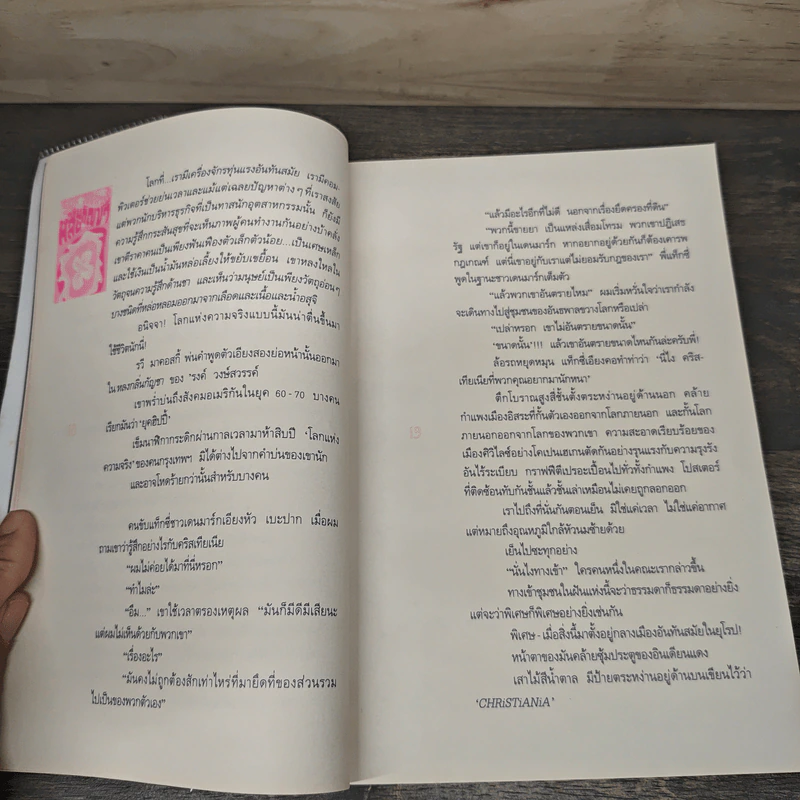 โลกที่...เรามีเครื่องจักรหุ่นแรงอันทันสมัย เรามีคอม-
พิวเตอร์ช่วยย่นเวลาและแม้แต่เฉลยปัญหาต่างๆ ที่เราสงสัย
แต่พวกนักบริหารธุรกิจที่เป็นทาสนักอุตสาหกรรมนั้น ก็ยังมี
ความรู้สึกกระสันสุขที่จะเห็นภาพผู้คนทำงานกันอย่างบ้าคลั่ง
เขาตีราคาคนเป็นเพียงฟันเฟืองตัวเล็กตัวน้อย...เป็นเศษเหล็ก
และใช้เงินเป็นน้ำมันหล่อเลี้ยงให้ขยับเขยื้อน เขาหลงใหลใน
วัตถุจนความรู้สึกด้านชา และเห็นว่ามนุษย์เป็นเพียงวัตถุอ่อนๆ
บางชนิดที่หล่อหลอมออกมาจากเลือดและเนื้อและน้ำอสุจิ
อนิจจา! โลกแห่งความจริงแบบนี้มันน่าตื่นขึ้นมา
ใช้ชีวิตนักนี่!
รวี มาคอสกี้ พ่นคำพูดตัวเอียงสองย่อหน้านั้นออกมา
ในหลงกลิ่นกัญชา ของ 'รงค์ วงษ์สวรรค์
เขาพร่ำบ่นถึงสังคมอเมริกันในยุค 60-70 บางคน
เรียกมันว่า 'ยุคฮิปปี้'
เข็มนาฬิกากระดิกผ่านกาลเวลามาห้าสิบปี 'โลกแห่ง
ความจริง' ของคนกรุงเทพฯ มิได้ต่างไปจากคำบ่นของเขานัก
และอาจโหดร้ายกว่านั้นสำหรับบางคน
คนขับแท็กซี่ชาวเดนมาร์กเอียงหัว เบะปาก เมื่อผม
ถามเขาว่ารู้สึกอย่างไรกับคริสเทียเนีย
“ผมไม่ค่อยได้มาที่นี่หรอก”
“ทำไมล่ะ”
“อืม...” เขาใช้เวลาตรองเหตุผล “มันก็มีดีมีเสียนะ
แต่ผมไม่เห็นด้วยกับพวกเขา”
“เรื่องอะไร”
“มันคงไม่ถูกต้องสักเท่าไหร่ที่มายึดที่ของส่วนรวม
ไปเป็นของพวกตัวเอง”
“แล้วมีอะไรอีกที่ไม่ดี นอกจากเรื่องยึดครองที่ดิน”
“พวกนี้ขายยา เป็นแหล่งเสื่อมโทรม พวกเขาปฏิเสธ
รัฐ แต่เขาก็อยู่ในเดนมาร์ก หากอยากอยู่ด้วยกันก็ต้องเคารพ
กฎเกณฑ์ แต่นี่เขาอยู่กับเราแต่ไม่ยอมรับกฎของเรา” พี่แท็กซี่
พูดในฐานะชาวเดนมาร์กเต็มตัว
“แล้วพวกเขาอันตรายไหม” ผมเริ่มหวั่นใจว่าเรากำลัง
จะเดินทางไปสู่ชุมชนของอันธพาลขวางโลกหรือเปล่า
“เปล่าหรอก เขาไม่อันตรายขนาดนั้น”
'ขนาดนั้น'!!!! แล้วเขาอันตรายขนาดไหนกันล่ะครับพี่!
ล้อรถหยุดหมุน แท็กซี่เอียงคอทำท่าว่า 'นี่ไง คริส-
เทียเนียที่พวกคุณอยากมานักหนา'
ตึกโบราณสูงสี่ชั้นตั้งตระหง่านอยู่ด้านนอก คล้าย
กำแพงเมืองอิสระที่กั้นตัวเองออกจากโลกภายนอก และกั้นโลก
ภายนอกออกจากโลกของพวกเขา ความสะอาดเรียบร้อยของ
เมืองศิวิไลซ์อย่างโคเปนเฮเกนตัดกันอย่างรุนแรงกับความรุงรัง
อันไร้ระเบียบ กราฟฟิตีเปรอะเปื้อนไปทั่วทั้งกำแพง โปสเตอร์
ที่ติดซ้อนทับกันชั้นแล้วชั้นเล่าเหมือนไม่เคยถูกลอกออก
เราไปถึงที่นั่นกันตอนเย็น มิใช่แค่เวลา ไม่ใช่แค่อากาศ
แต่หมายถึงอุณหภูมิใกล้หัวนมซ้ายด้วย
เย็นไปซะทุกอย่าง
“นั่นไงทางเข้า” ใครคนหนึ่งในคณะเรากล่าวขึ้น
ทางเข้าชุมชนในฝันแห่งนี้จะว่าธรรมดาก็ธรรมดาอย่างยิ่ง
แต่จะว่าพิเศษก็พิเศษอย่างยิ่งเช่นกัน
พิเศษ-เมื่อสิ่งนี้มาตั้งอยู่กลางเมืองอันทันสมัยในยุโรป!
หน้าตาของมันคล้ายซุ้มประตูของอินเดียนแดง
เสาไม้สีน้ำตาล มีป้ายตระหง่านอยู่ด้านบนเขียนไว้ว่า
'CHRiSTiANiA'